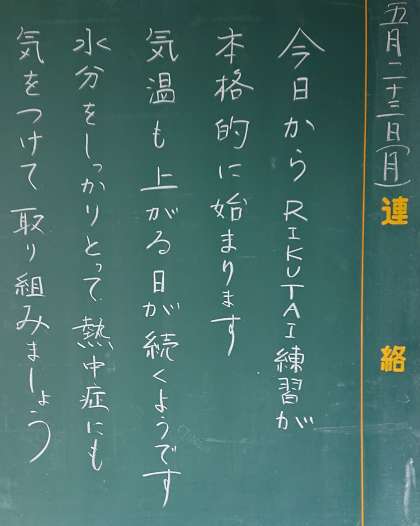 五月二十三日(月)
連絡
今日からRIKUTAI練習が
本格的に始まります
気温も上がる日が続くようです
水分をしっかりとって熱中症にも
気をつけて取り組みましょう